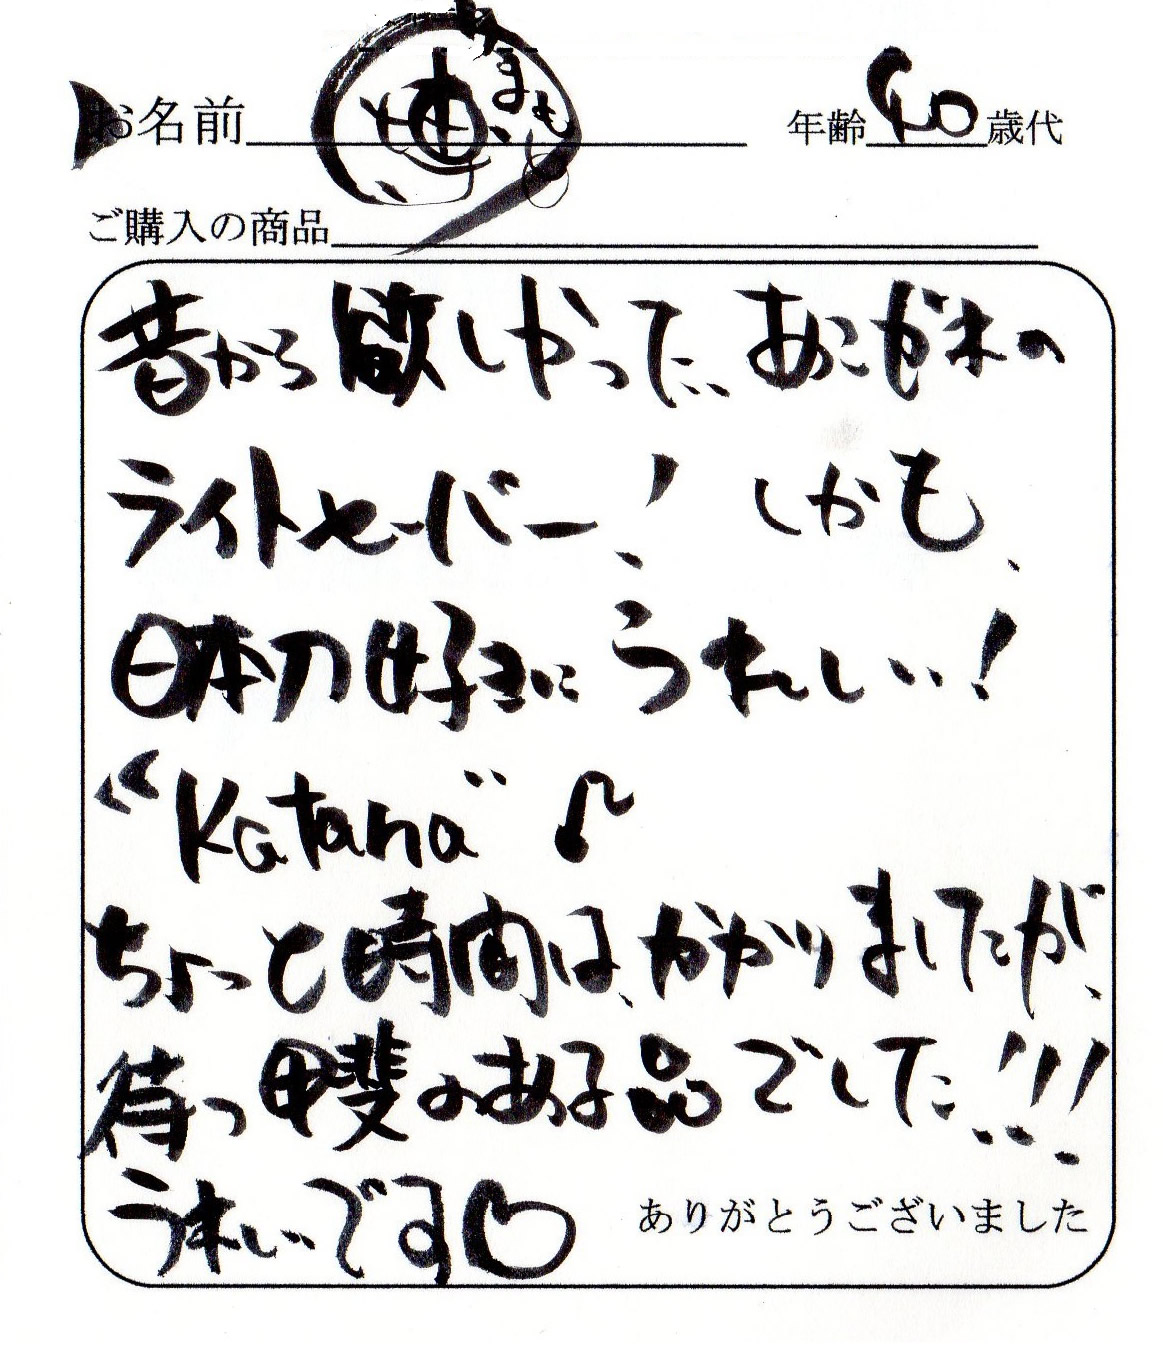 お名前 年齢 40 歳代
ご購入の商品
昔から欲しかった、あこがれの
ライトセーバー！しかも、
日本刀好きにうれしい！
“Katana”♪
ちょっと時間は、かかりましたが、
待つ甲斐のある品でした!!!
うれしいです♡
ありがとうございました